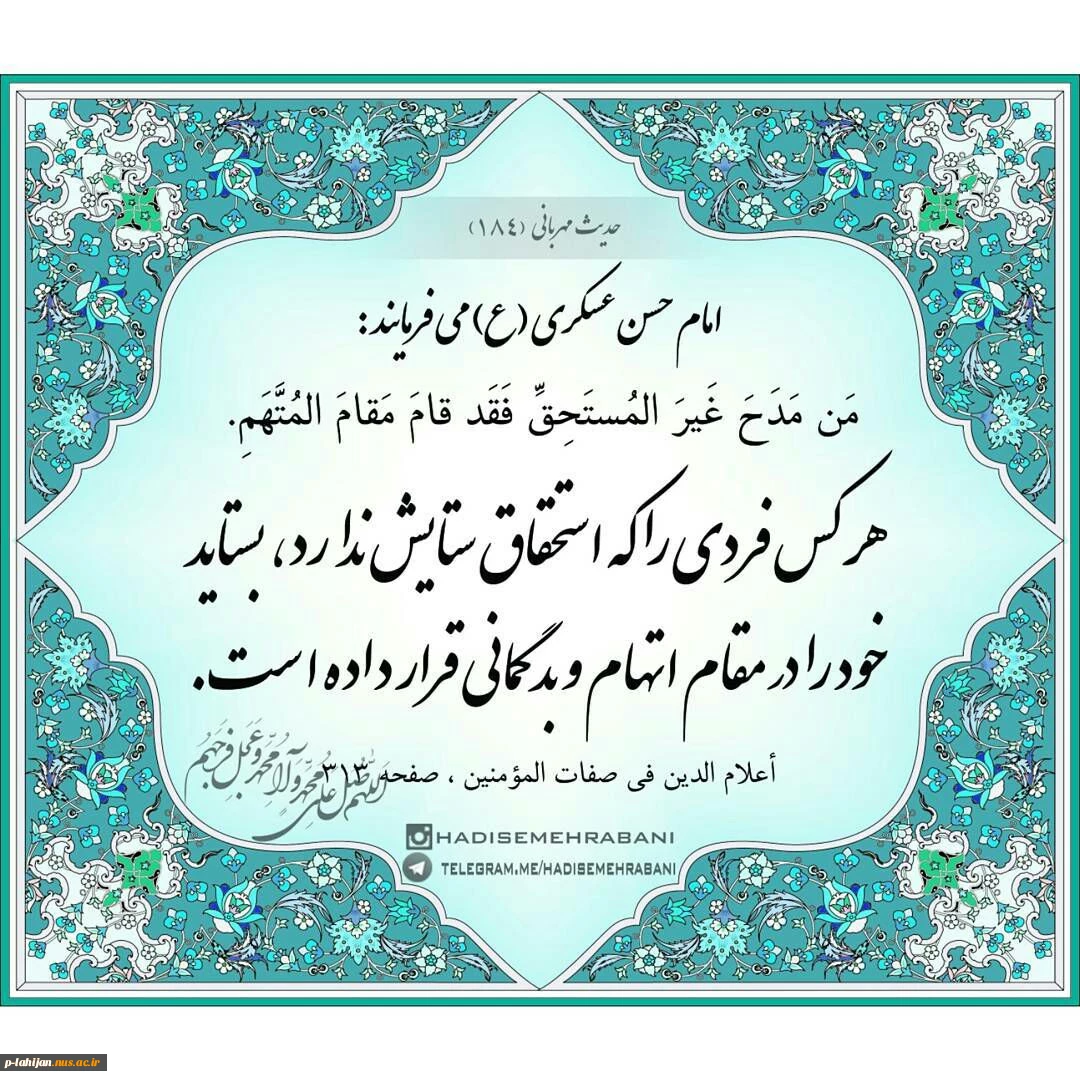 حدیث مهربانی (۱۸٤)
امام حسن عسکری (ع) می فرمایند:
مَن مَدَحَ غَيرَ المُستَحِقِّ فَقَد قامَ مَقامَ المُتَّهَمِ.
هر کس فردی را که استحقاق ستایش ندارد، بستاید
خود را در مقام اتهام و بدگمانی قرار داده است.
أعلام الدین فی صفات المؤمنین ، صفحه ۳۱۳
اللّهُمَّ صَلِّ عَلی مُحَمَّد وَ آلِ مُحَمَّد وَ عَجِّل فَرَجَهُم
HADISEMEHRABANI
TELEGRAM.ME/HADISEMEHRABANI
p-lahijan.nus.ac.ir